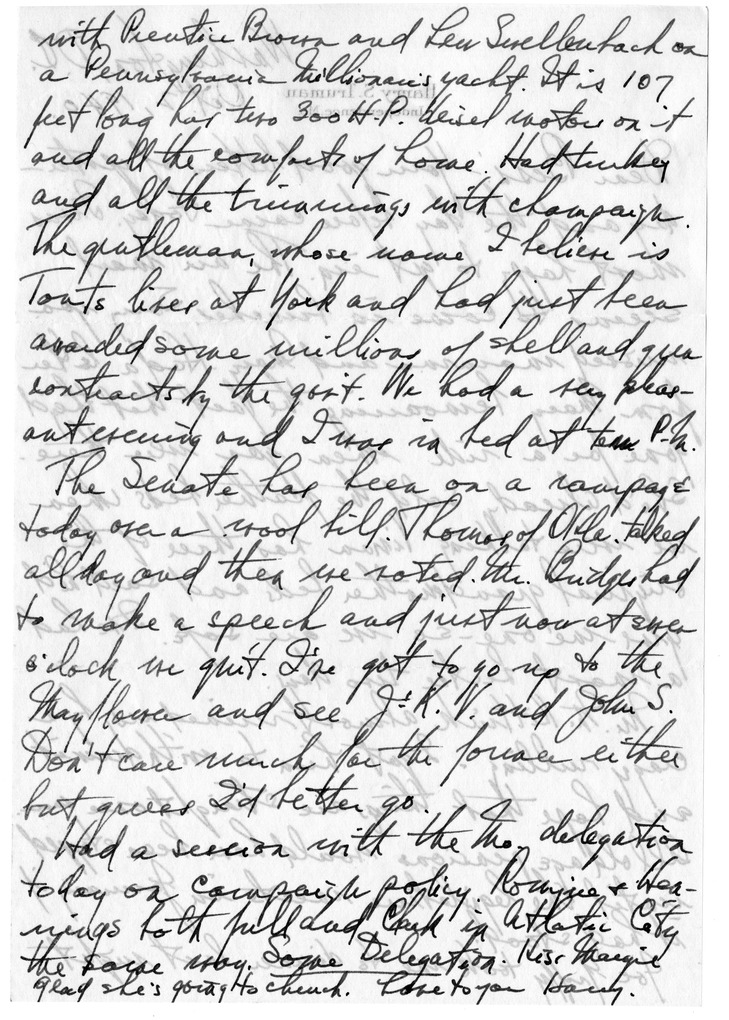 with Prentice Brown and Lew Swellenbach on
a Pennsylvania Millionair's yacht. It is 107
feet long has two 300 H.P. deisel motors on it
and all the comforts of home. Had turkey
and all the trimmings with champaign.
The gentleman, whose name I believe is
lives at York and had just been
awarded some millions of shell and gun
contracts by the gov't. We had a very pleas-
ant evening and I was in bed at ten P.M.
The Senate has been on a rampage
today over a wool bill. Thomas of Okla. talked
all day and then we voted. Mr. Bridges had
to make a speech and just now at seven
o'clock we quit. I've got to go up to the
Mayflower and see J.K.V. and John S.
Don't care much for the former either
but guess I'd better go.
Had a session with the Mo. delegation
today on campaign policy. Romjue & Hen-
nings both full and Clark in Atlantic City
the same way. Some Delegation. Kiss Margie
glad she's going to church. Love to you Harry.